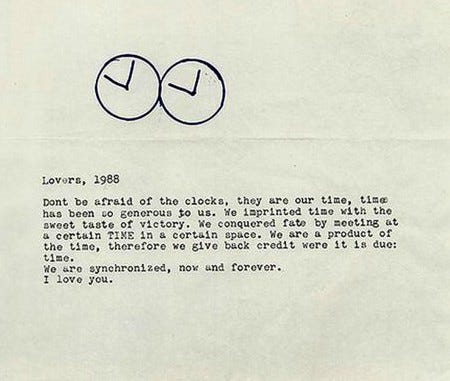 Lovers, 1988
Dont be afraid of the clocks, they are our time, time
has been so generous to us. We imprinted time with the
sweet taste of victory. We conquered fate by meeting at
a certain TIME in a certain space. We are a product of
the time, therefore we give back credit were it is due:
time.
We are synchronized, now and forever.
I love you.